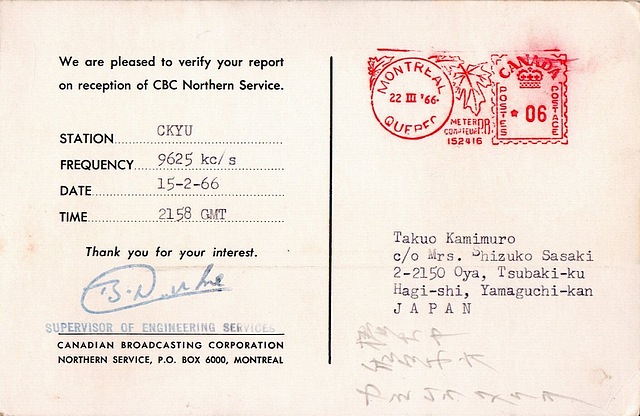 We are pleased to verify your report
on reception of CBC Northern Service.
STATION CKYU
FREQUENCY 9625 kc/s
DATE 15-2-66
TIME 2158 GMT
Thank you for your interest.
SUPERVISOR OF ENGINEERING SERVICES
CANADIAN BROADCASTING CORPORATION
NORTHERN SERVICE, P.O. BOX 6000, MONTREAL
MONTREAL
22 III '66
QUEBEC
METER
COMPTEUR
P.B.
152416
CANADA
POSTES
06
POSTAGE
Takuo Kamimuro
c/o Mrs. Shizuko Sasaki
2-2150 Oya, Tsubaki-ku
Hagi-shi, Yamaguchi-kan
J A P A N